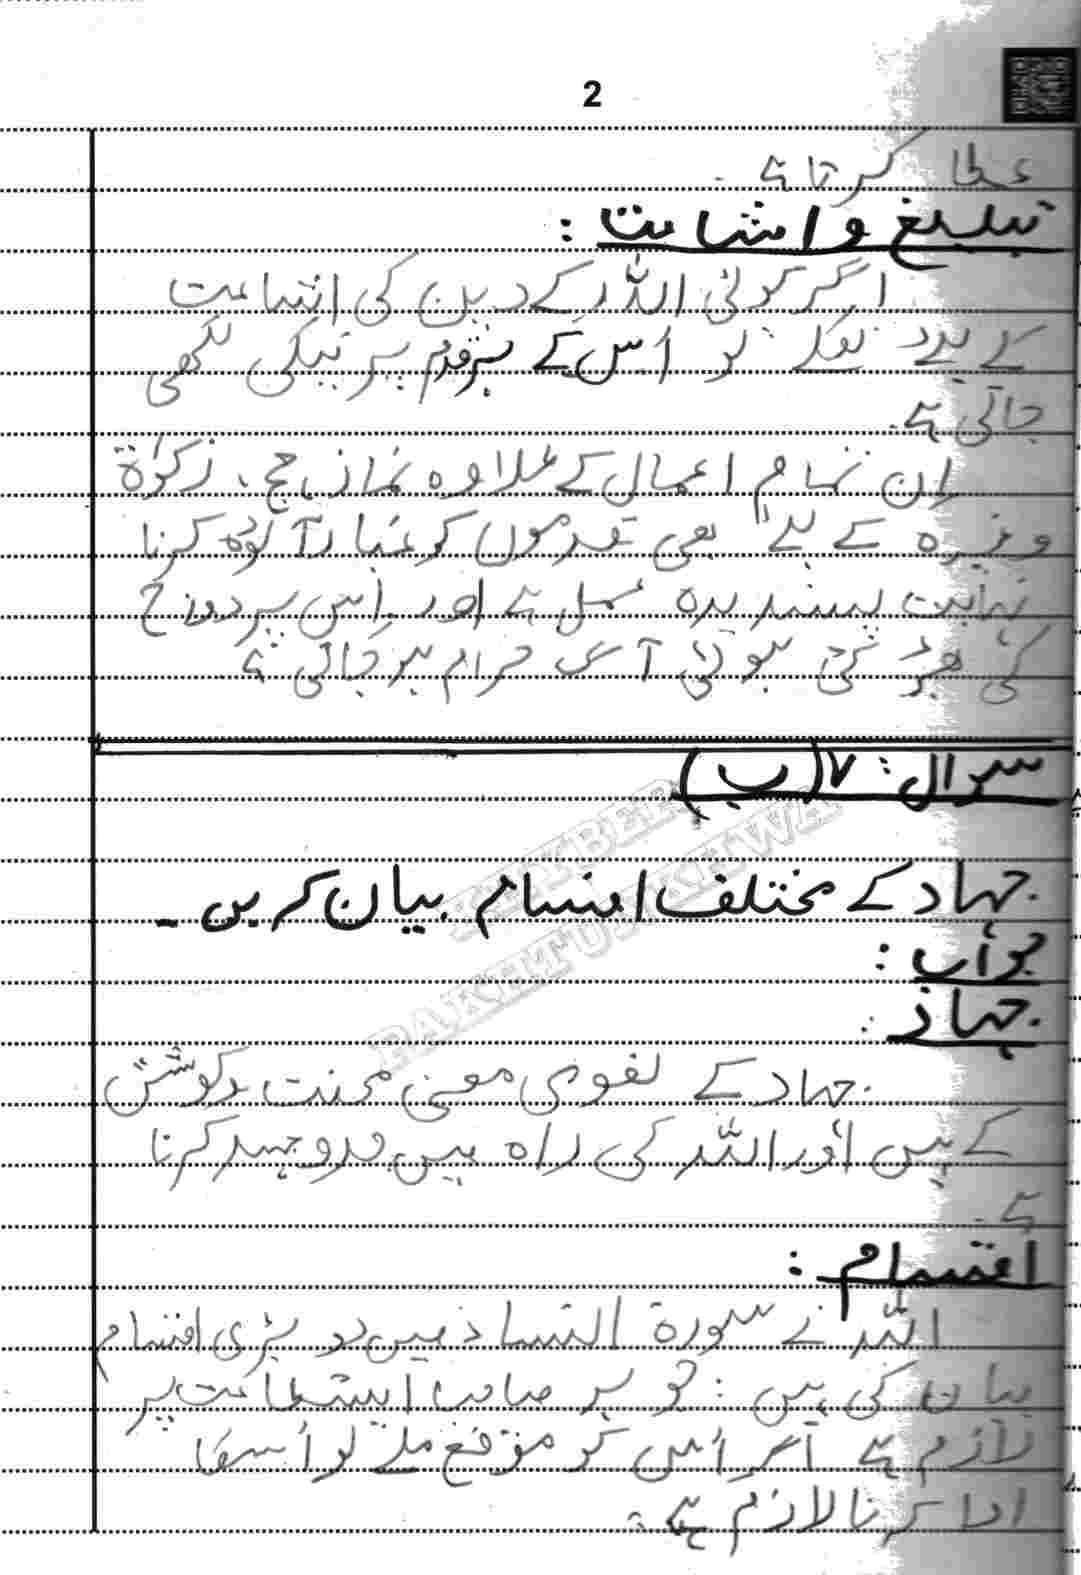 2
عطا کرتا ہے۔
تبلیغ و اشاعت:
اگر کوئی اللہ کے دین کی اشاعت
کے لیے نکلے تو اُس کے ہر قدم پر نیکی لکھی
جاتی ہے۔
اِن تمام اعمال کے علاوہ نماز، حج، زکوٰۃ
وغیرہ کے لیے بھی قدموں کو غبار آلود کرنا
نہایت پسندیدہ عمل ہے اور اِس پر دوزخ
کی بھڑکتی ہوئی آگ حرام ہو جاتی ہے
سوال: ۷(ب)
KHYBER
PAKHTUNKHWA
جہاد کے مختلف اقسام بیان کریں۔
جواب:
جہاد:
جہاد کے لغوی معنی محنت وکوشش
کے ہیں اور اللہ کی راہ میں جدوجہد کرنا
ہے۔
اقسام:
اللہ نے سورۃ النساء میں دو بڑی اقسام
بیان کی ہیں: جو ہر صاحب استطاعت پر
لازم ہے اگر اُس کو موقع ملے تو اُسکا
ادا کرنا لازم ہے۔